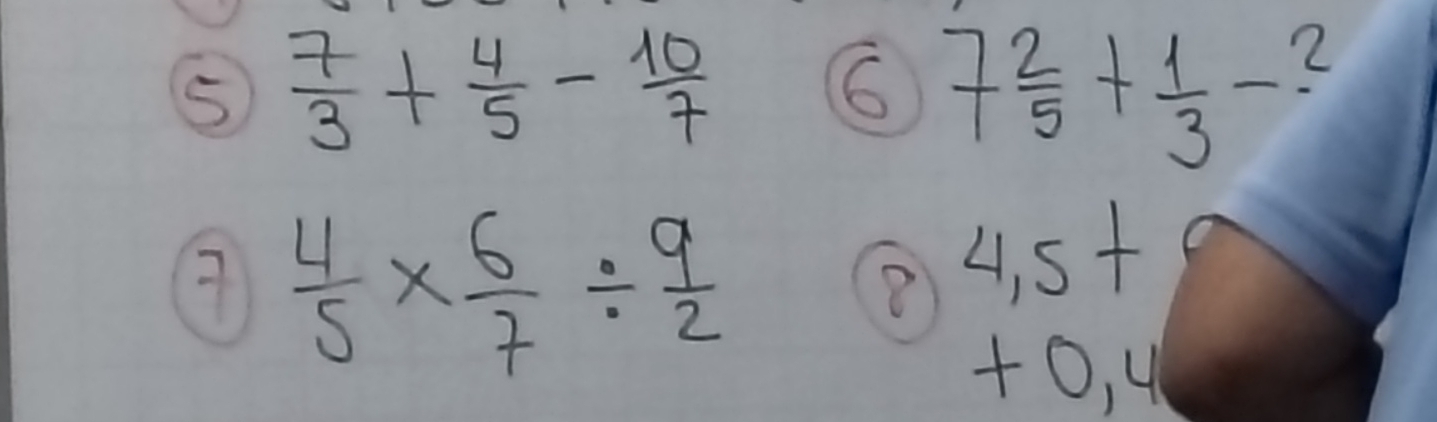 ⑤ 7/3 + 4/5 - 10/7
⑥ 7 2/5 + 1/3 -
⑦ 4/5 × 6/7 ÷ 9/2
⑧ 4,5 +
+ 0,4